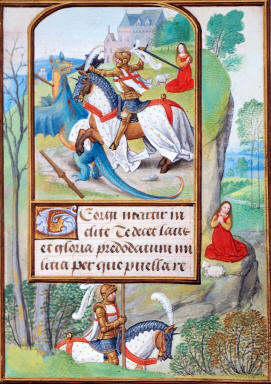 Georgi martir in
clite Te decet laus
et gloria predotatum mi
licia per que puella re